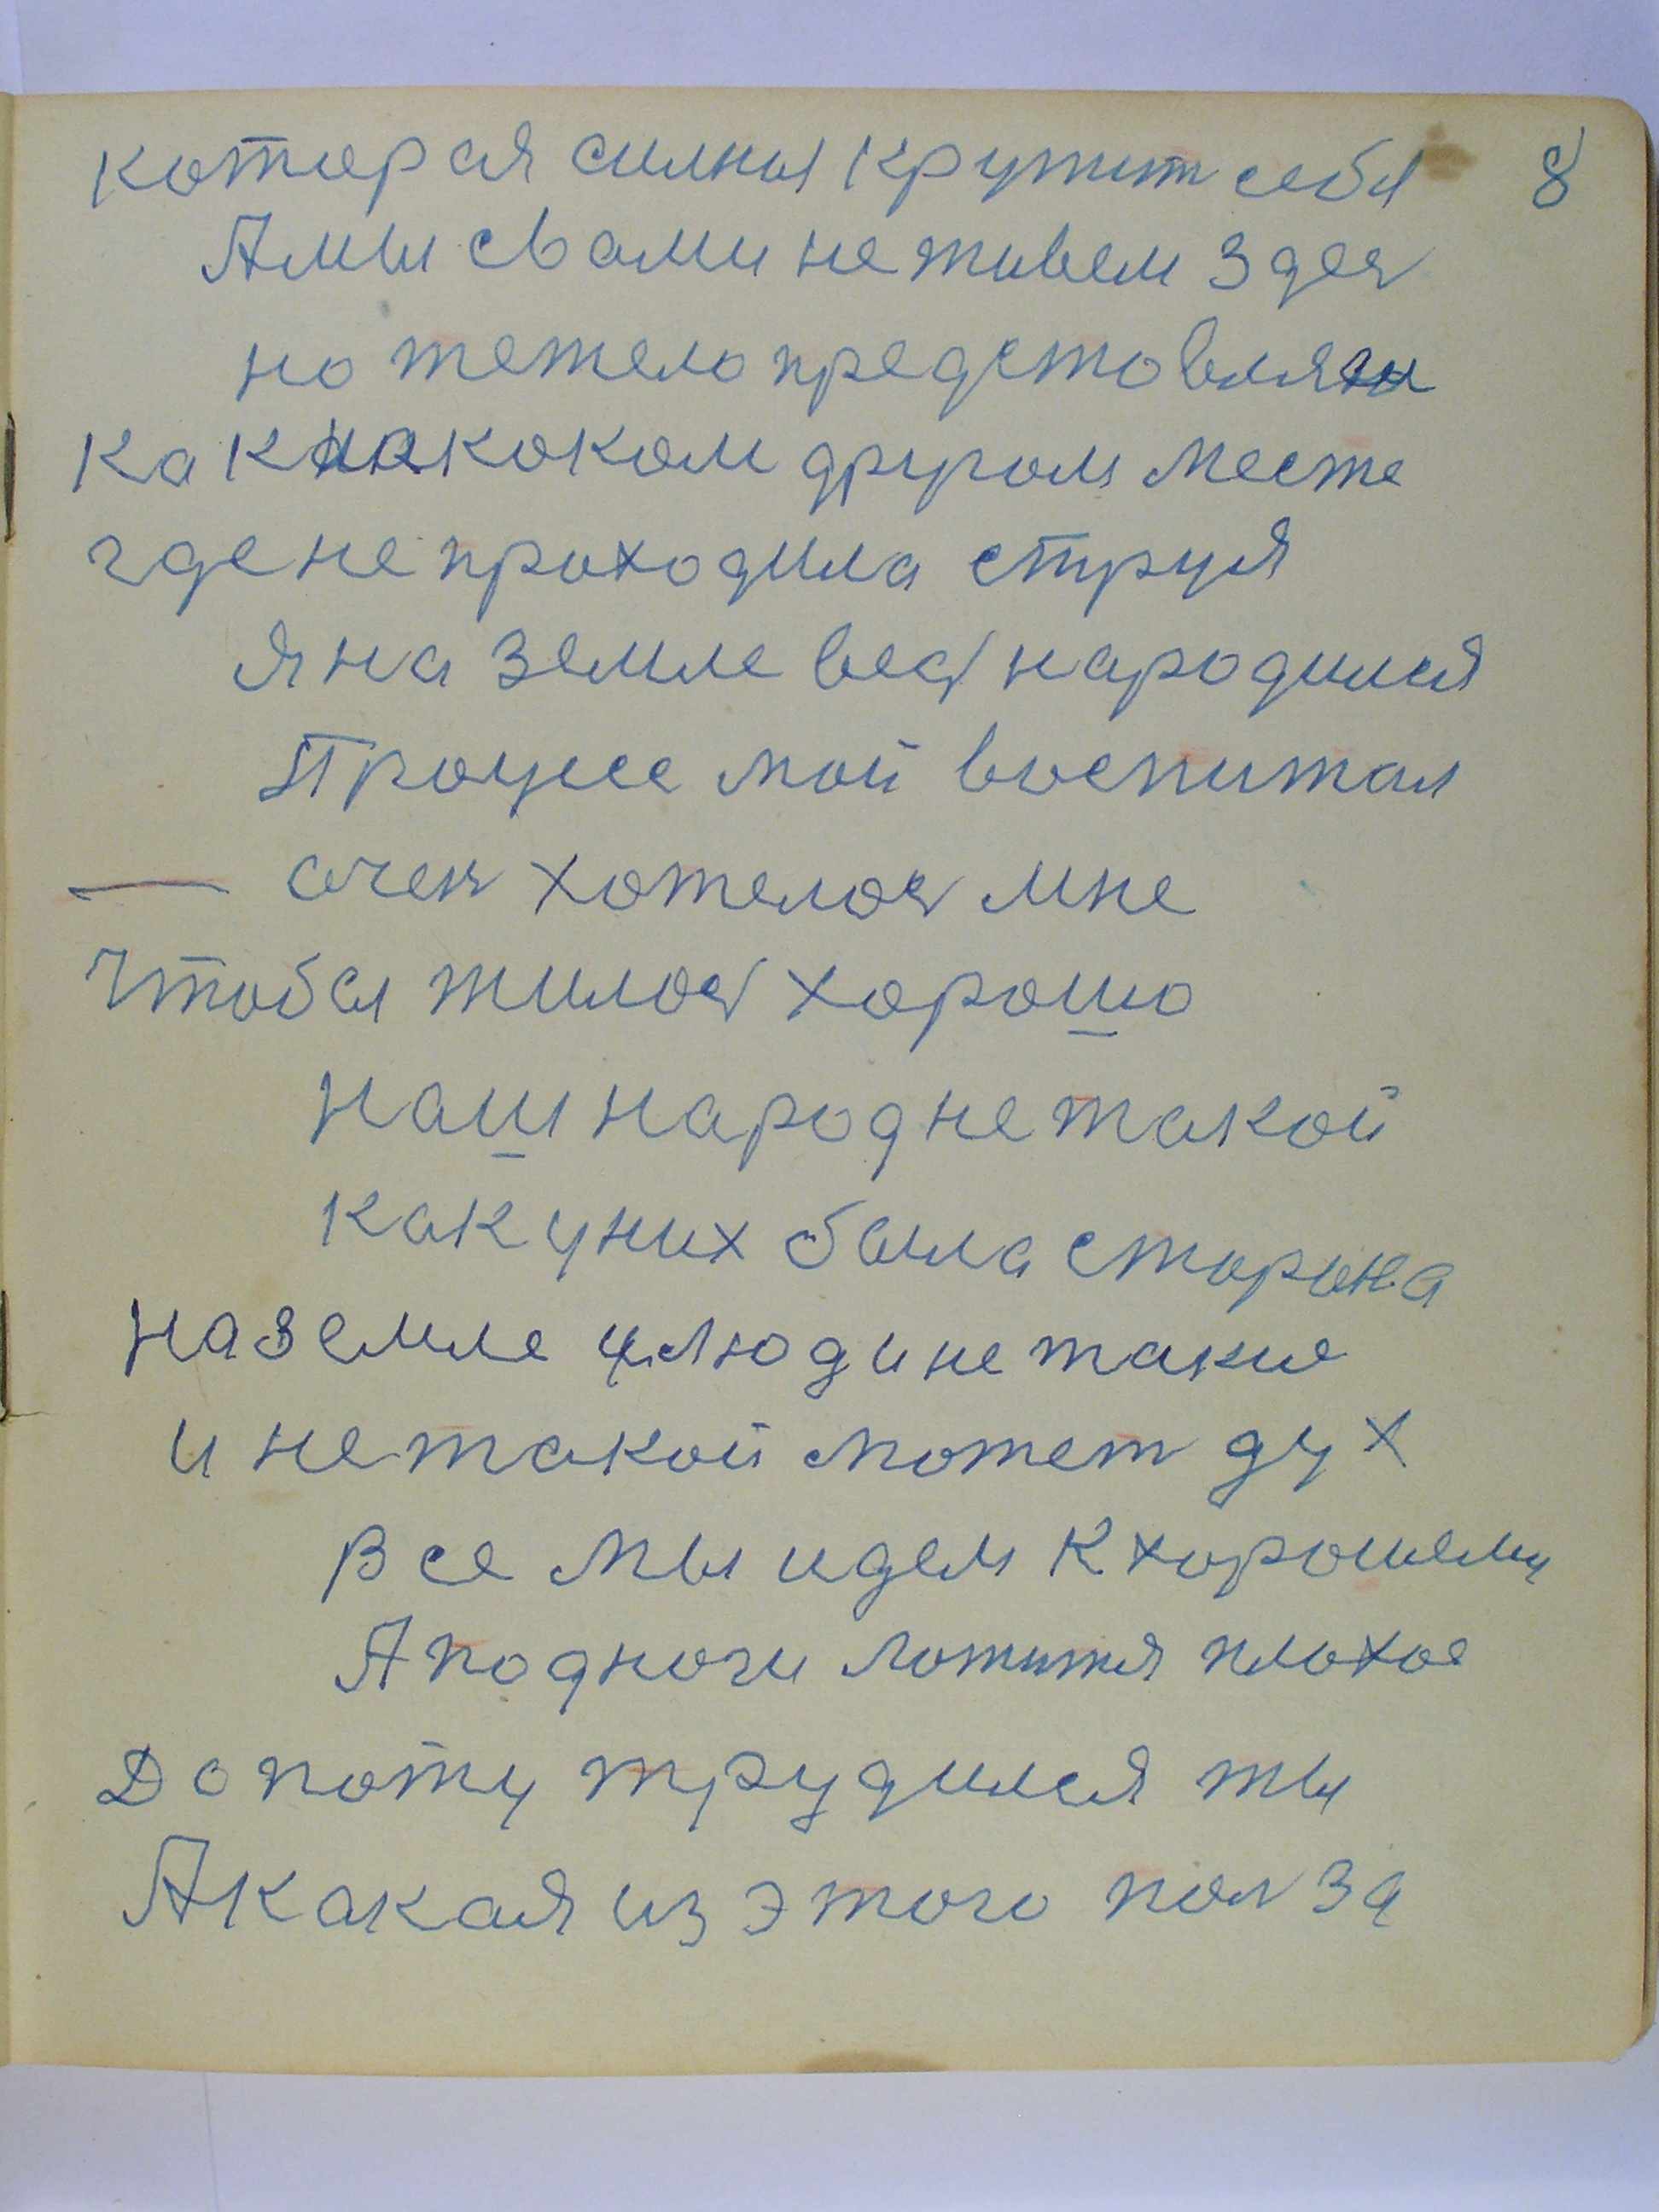 которая силны крутит себя 8
А мы с вами не живем здес
но тежело представлял
как на коком другом месте
где не проходила струя
Я на земле вес народился
Процес мой воспитал
— очен хотелос мне
Чтобы жилос хорошо
наш народ не такой
как у них была сторона
на земле и люди не такие
и не такой может дух
Все мы идем к хорошему
А под ноги ложится плохое
До поту трудился ты
А какая из этого полза